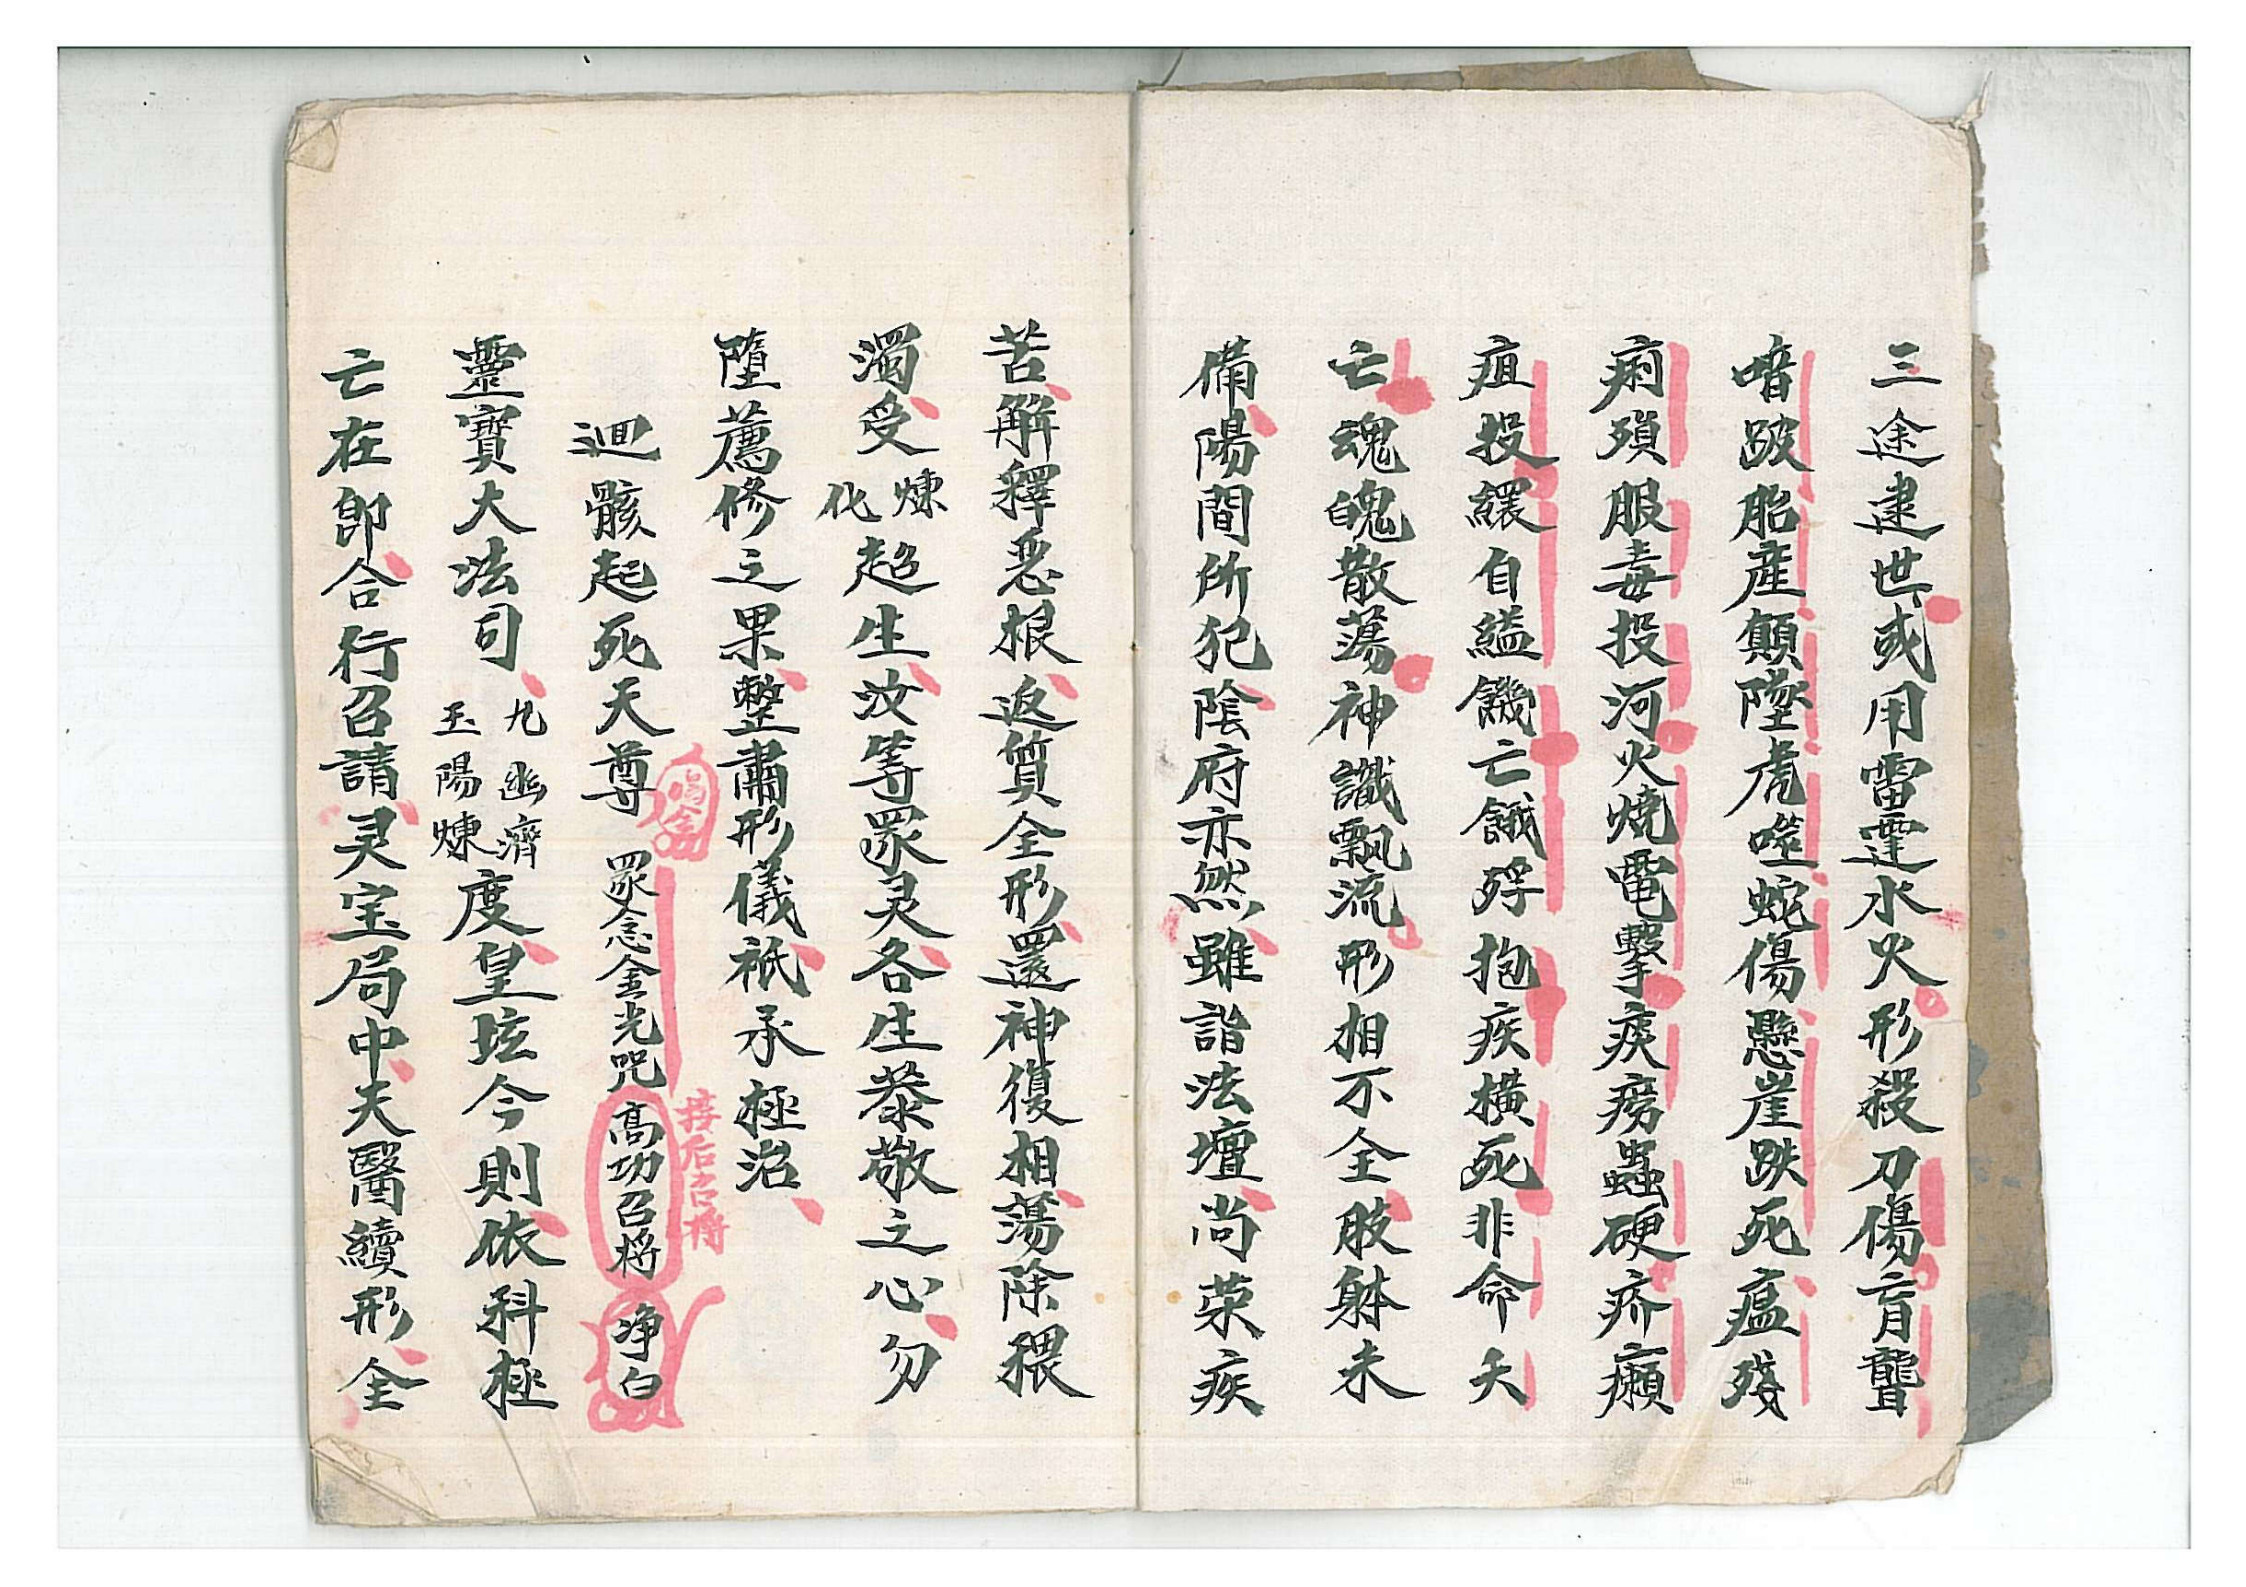 三途逮世或用雷霆水火形殺刀傷盲聾
喑跛胎産顛墜虎噬蛇傷懸崖跌死瘟殘
痢殞服毒投河火燒電擊疾癆蠱硬疥癩
疽投繯自縊饑亡餓殍抱疾橫死非命夭
亡魂魄散蕩神識飄流形相不全肢躰未
備陽間所犯陰府亦然雖詣法壇尚荣疾
苦解釋惡根返質全形還神復相蕩除猥
濁受煉化超生汝等眾灵各生恭敬之心勿
墮薦修之果整肅形儀祇承極治
迴骸起死天尊 眾念金光咒 高功召将 净白
接后召将
靈寶大法司九幽濟玉陽煉度皇坛今則依科極
亡在即合行召請灵宝局中天醫續形全